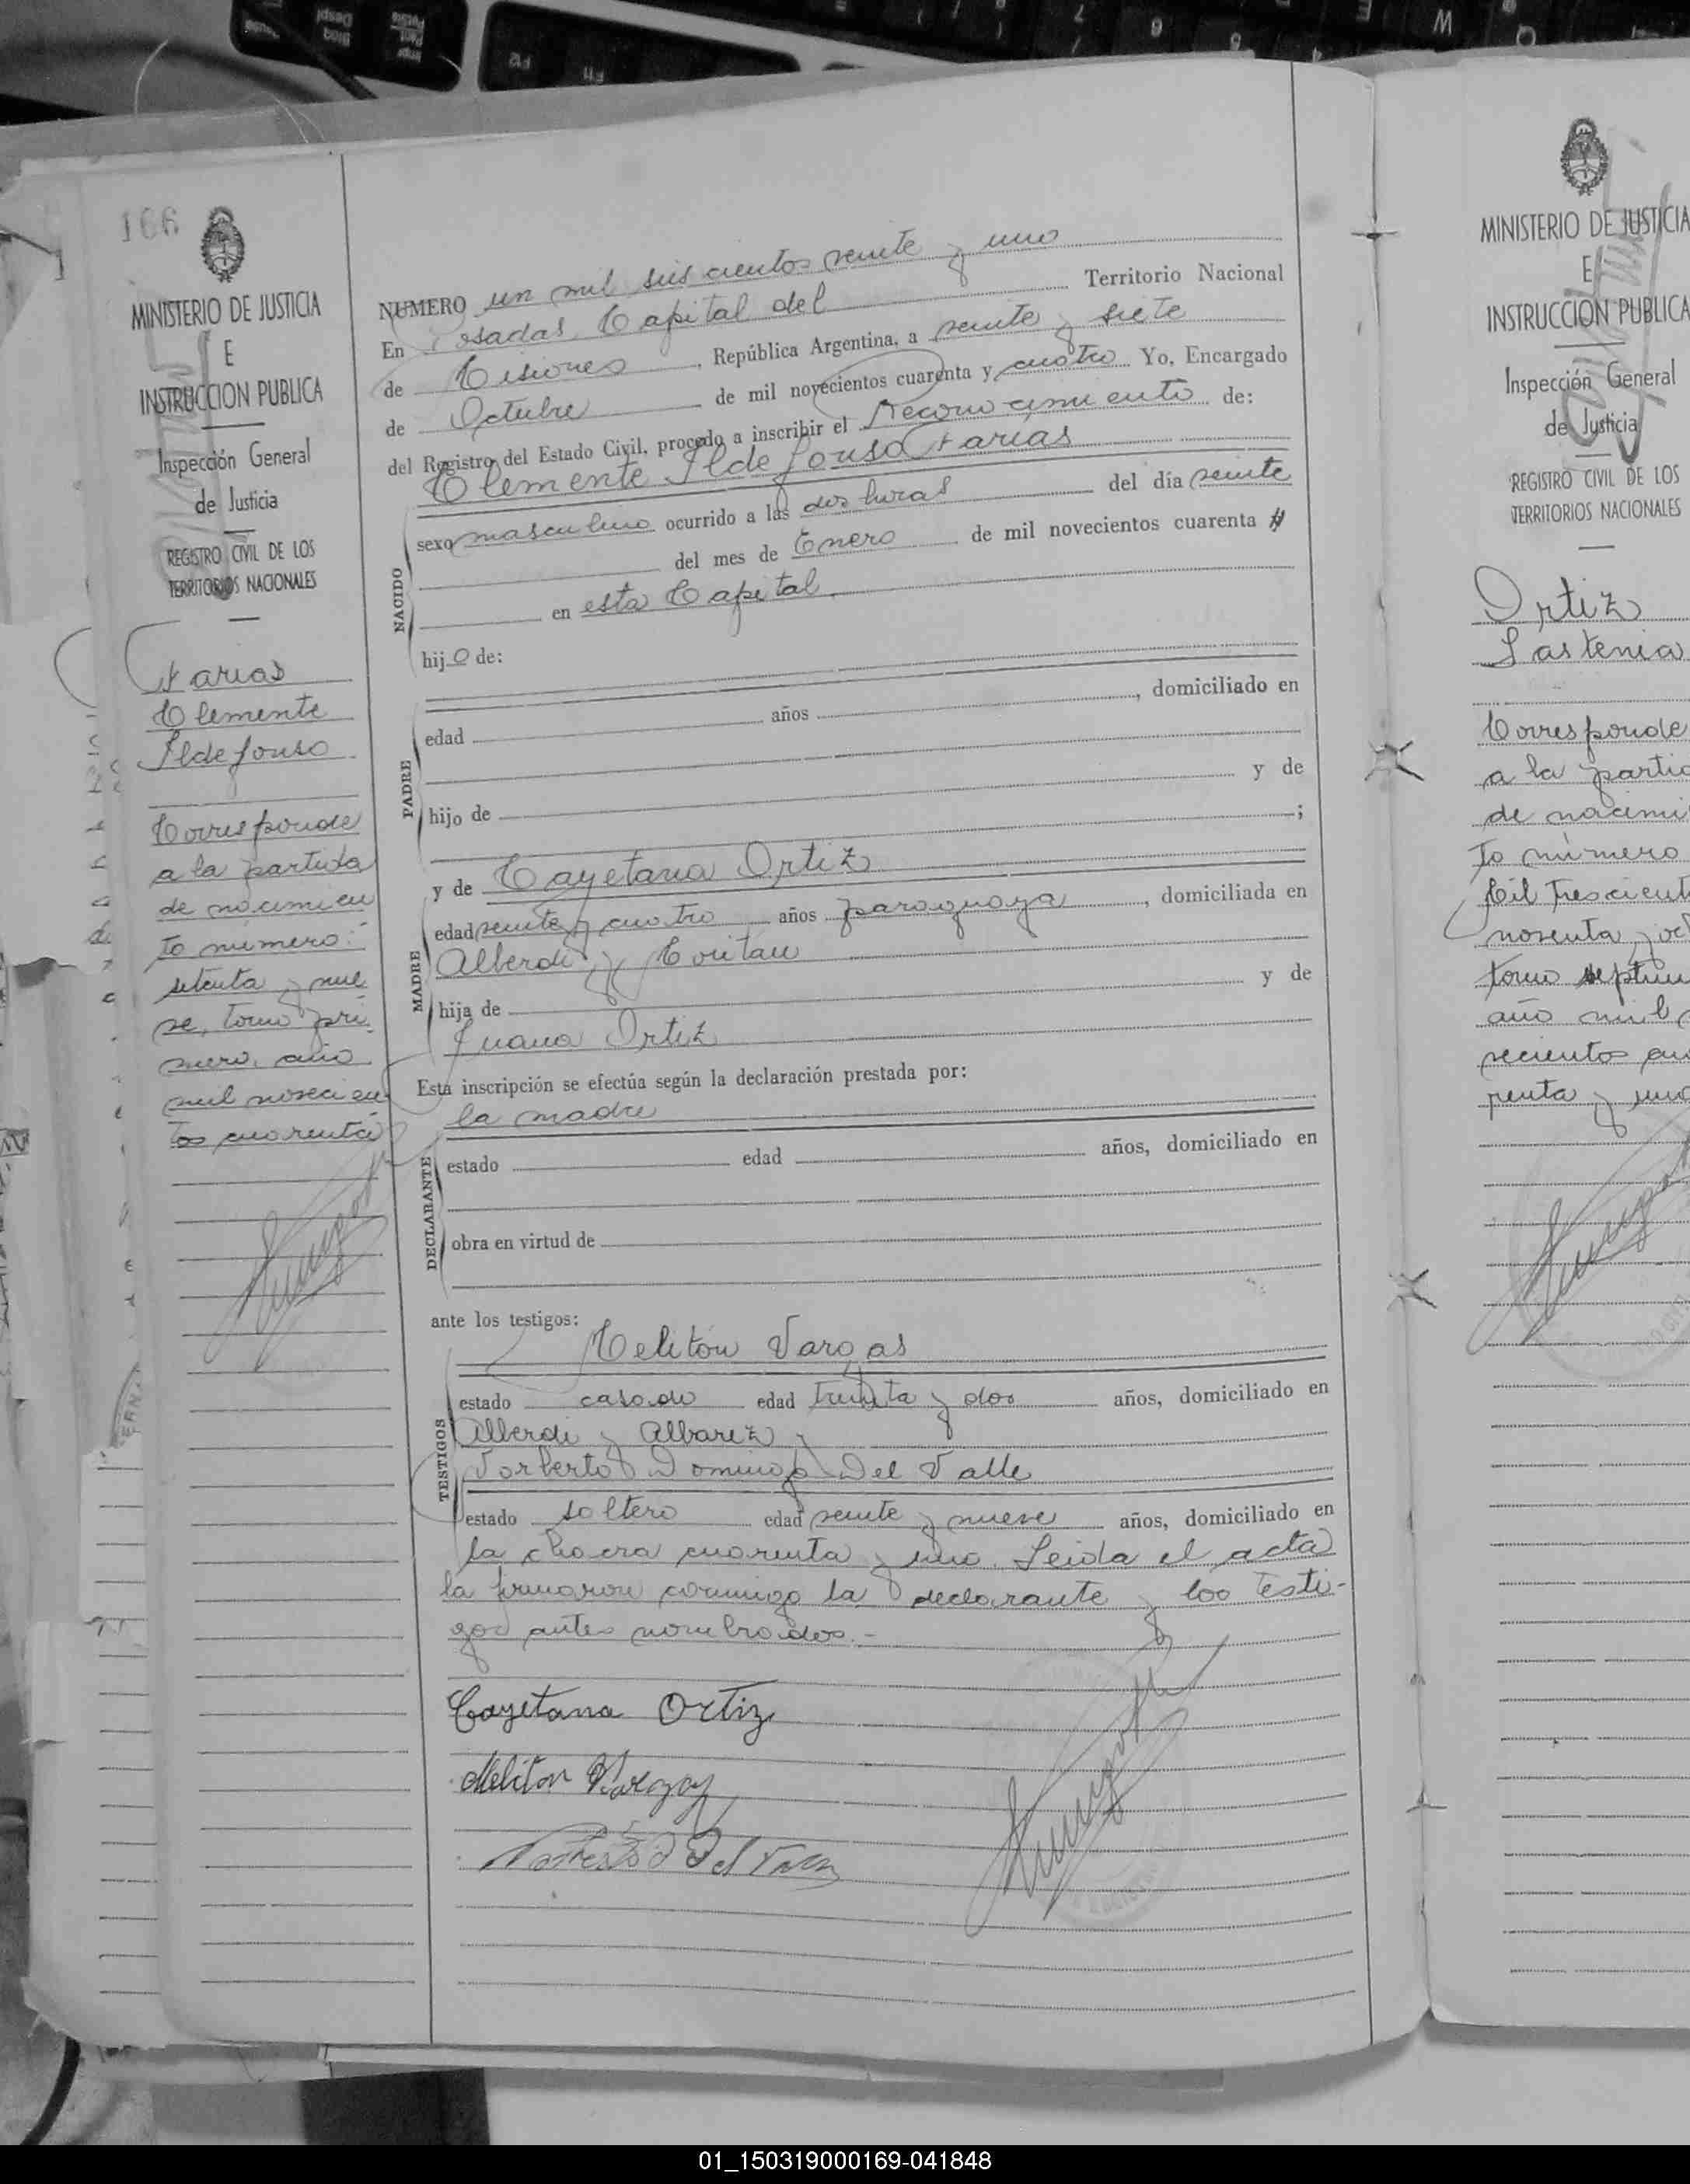 166
MINISTERIO DE JUSTICIA
E
INSTRUCCION PUBLICA
Inspección General
de Justicia
REGISTRO CIVIL DE LOS
TERRITORIOS NACIONALES
Farias
Clemente
Ildefonso
Corresponde
a la partida
de nacimien
to número:
setenta y nue
ve, tomo pri
mero, año
mil novecien
tos cuarenta
NUMERO un mil seis cientos veinte y uno
En Posadas, Capital del Territorio Nacional
de Misiones, República Argentina, a veinte y siete
de Octubre de mil novecientos cuarenta y cuatro Yo, Encargado
del Registro del Estado Civil, procedo a inscribir el Reconocimiento de:
Clemente Ildefonso Farias
NACIDO
sexo masculino ocurrido a las dos horas del día veinte
del mes de Enero de mil novecientos cuarenta y
en esta Capital.
hijo de:
PADRE
edad años , domiciliado en
hijo de y de
;
y de Cayetana Ortiz
MADRE
edad veinte y cuatro años paraguaya, domiciliada en
Alberdi y
hija de y de
Juana Ortiz
Esta inscripción se efectúa según la declaración prestada por:
la madre
DECLARANTE
estado edad años, domiciliado en
obra en virtud de
ante los testigos:
Meliton Vargas
TESTIGOS
estado casado edad treinta y dos años, domiciliado en
Alberdi y Albarez y
Norberto Domingo Del Valle
estado soltero edad veinte y nueve años, domiciliado en
la chacra cuarenta y uno. Leida el acta
la firmaron conmigo la declarante y los testi-
gos antes nombrados.-
Cayetana Ortiz
Meliton Vargas
Norberto D Del Valle
MINISTERIO DE JUSTICIA
E
INSTRUCCION PUBLICA
Inspección General
de Justicia
REGISTRO CIVIL DE LOS
TERRITORIOS NACIONALES
Ortiz
Lastenia
Corresponde
a la partid
de nacimi
to número
Mil trescient
noventa y oc
tomo septim
año mil
vecientos cua
renta y uno
01_150319000169-041848